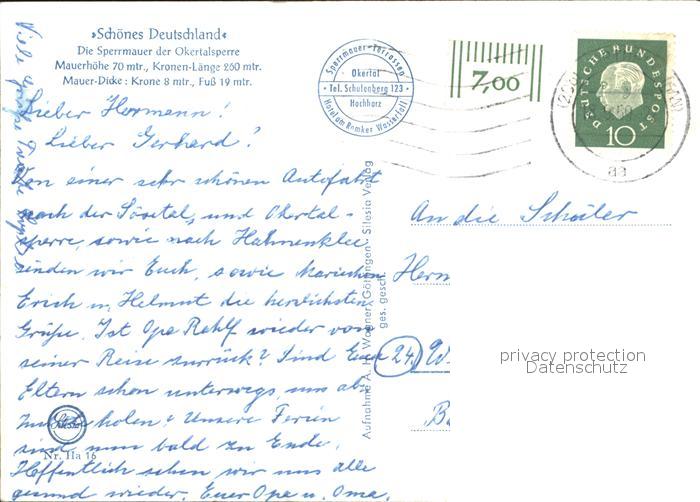 »Schönes Deutschland«
Die Sperrmauer der Okertalsperre
Mauerhöhe 70 mtr., Kronen-Länge 260 mtr.
Mauer-Dicke: Krone 8 mtr., Fuß 19 mtr.
Sperrmauer-Terrassen
Okertal
Tel. Schulenberg 123
Hochharz
Hotel am Romker Wasserfall
7,00
DEUTSCHE BUNDESPOST
10
aa
Viele Grüße
Lieber Hermann!
Lieber Gerhard!
Von einer sehr schönen Autofahrt
nach der Sösetal, und Okertal-
sperre, sowie nach Hahnenklee
senden wir Euch, sowie
Erich u. Helmut die herzlichsten
Grüße. Ist Opa Rehlf wieder von
seiner Reise zurück? Sind Eure
Eltern schon unterwegs, um ab
holen? Unsere Ferien
sind nun bald zu Ende.
Hoffentlich sehen wir uns alle
gesund wieder. Euer Opa u. Oma.
Silesia
Nr. Ha 16
Aufnahme A. H. Wagner, Göttingen - Silesia Verlag
ges. gesch.
An die Schüler
Herm
24
B
privacy protection
Datenschutz